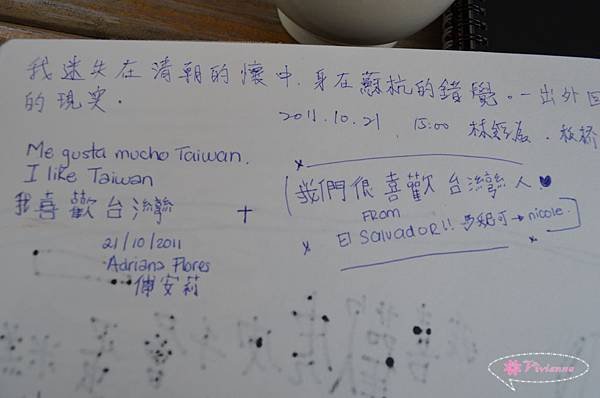 我迷失在清朝的懷中,身在蘇杭的錯覺。一出外回
的現実.
2011.10.21 15:00 林經辰.板橋
Me gusta mucho Taiwan.
I like Taiwan
我喜歡台灣
21/10/2011
Adriana Flores
安莉
我們很喜歡台灣人
FROM
El SalvadoR!! 妮可 → nicole.
Vivianna